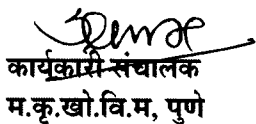 कार्यकारी संचालक
म.कृ.खो.वि.म, पुणे